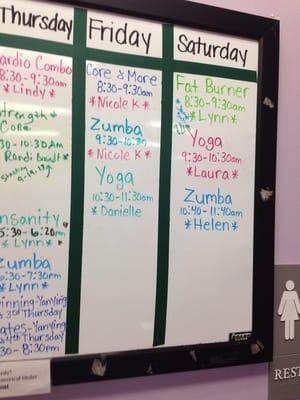 Thursday
Cardio Combo
8:30-9:30am
*Lindy*
Strength &
Core
Randi
Insanity
5:30-6:20pm
*Lynn*
Zumba
6:30-7:30pm
*Lynn*
3rd Thursday
4th Thursday
8:30pm
Friday
Core & More
8:30-9:30am
*Nicole K*
Zumba
9:30-10:30
*Nicole K*
Yoga
10:30-11:30am
*Danielle
Saturday
Fat Burner
8:30-9:30am
*Lynn*
Yoga
9:30-10:30am
*Laura*
Zumba
10:40-11:40am
*Helen*
REST